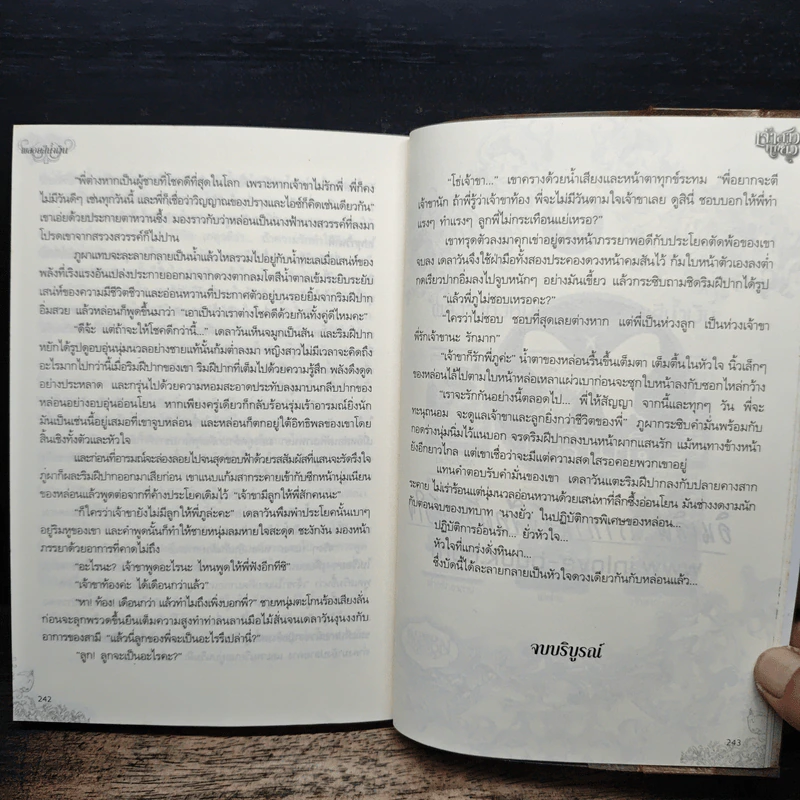 "พี่ต่างหากเป็นผู้ชายที่โชคดีที่สุดในโลก เพราะหากเจ้าขาไม่รักพี่ พี่ก็คง
ไม่มีวันดีๆ เช่นทุกวันนี้ และพี่ก็เชื่อว่าวิญญาณของปรางและไอซ์ก็คิดเช่นเดียวกัน"
เขาเอ่ยด้วยประกายตาหวานซึ้ง มองราวกับว่าหล่อนเป็นนางฟ้านางสวรรค์ที่ลงมา
โปรดเขาจากสรวงสวรรค์ก็ไม่ปาน
ภูผาแทบจะละลายกลายเป็นน้ำแล้วไหลรวมไปอยู่กับน้ำทะเลเมื่อเสน่ห์ของ
พลังที่เร้นแรงอันเปล่งประกายออกมาจากดวงตากลมโตสีน้ำตาลเข้มระยิบระยับ
เสน่ห์ของความมีชีวิตชีวาและอ่อนหวานที่ประกาศตัวอยู่บนรอยยิ้มจากริมฝีปาก
อิ่มสวย แล้วหล่อนก็พูดขึ้นมาว่า "เอาเป็นว่าเราต่างโชคดีด้วยกันทั้งคู่ดีไหมคะ"
"ดีจ้ะ แต่ถ้าจะให้โชคดีกว่านี้..." เดลาวันเห็นจมูกเป็นสัน และริมฝีปาก
หยักได้รูปดูอบอุ่นนุ่มนวลอย่างชายแท้นั้นก้มต่ำลงมา หญิงสาวไม่มีเวลาจะคิดถึง
อะไรมากไปกว่านี้เมื่อริมฝีปากของเขา ริมฝีปากที่เต็มไปด้วยความรู้สึก พลังดึงดูด
อย่างประหลาด และกรุ่นไปด้วยความหอมสะอาดประทับลงมาบนกลีบปากของ
หล่อนอย่างอบอุ่นอ่อนโยน หากเพียงครู่เดียวก็กลับร้อนรุ่มเร้าอารมณ์ยิ่งนัก
มันเป็นเช่นนี้อยู่เสมอที่เขาจูบหล่อน และหล่อนก็ตกอยู่ใต้อิทธิพลของเขาโดย
สิ้นเชิงทั้งตัวและหัวใจ
และก่อนที่อารมณ์จะล่องลอยไปจนสุดขอบฟ้าด้วยรสสัมผัสที่แสนจะรัดรึงใจ
ภูผาก็ผละริมฝีปากออกมาเสียก่อน เขาแนบแก้มสากระคายเข้ากับซีกหน้านุ่มเนียน
ของหล่อนแล้วพูดต่อจากที่ค้างประโยคเดิมไว้ "เจ้าขามีลูกให้พี่สักคนนะ"
"ก็ใครว่าเจ้าขายังไม่มีลูกให้พี่ภูล่ะคะ" เดลาวันพึมพำประโยคนั้นเบาๆ
อยู่ริมหูของเขา และคำพูดนั้นก็ทำให้ชายหนุ่มลมหายใจสะดุด ชะงักงัน มองหน้า
ภรรยาด้วยอาการที่คาดไม่ถึง
"อะไรนะ? เจ้าขาพูดอะไรนะ ไหนพูดให้พี่ฟังอีกทีซิ"
"เจ้าขาท้องค่ะ ได้เดือนกว่าแล้ว"
"หา! ท้อง! เดือนกว่า แล้วทำไมถึงเพิ่งบอกพี่?" ชายหนุ่มตะโกนร้องเสียงลั่น
ก่อนจะลุกพรวดขึ้นยืนเต็มความสูงทำท่าลนลานมือไม้สั่นจนเดลาวันงุนงงกับ
อาการของสามี "แล้วนี่ลูกของพี่จะเป็นอะไรรึเปล่านี่?"
"ลูก! ลูกจะเป็นอะไรคะ?"
242
"โธ่เจ้าขา..." เขาครางด้วยน้ำเสียงและหน้าตาทุกข์ระทม "พี่อยากจะตี
เจ้าขานัก ถ้าพี่รู้ว่าเจ้าขาท้อง พี่จะไม่มีวันตามใจเจ้าขาเลย ดูสินี่ ชอบบอกให้พี่ทำ
แรงๆ ทำแรงๆ ลูกพี่ไม่กระเทือนแย่เหรอ?"
เขาทรุดตัวลงมาคุกเข่าอยู่ตรงหน้าภรรยาพอดีกับประโยคตัดพ้อของเขา
จบลง เดลาวันจึงใช้ฝ่ามือทั้งสองประคองดวงหน้าคมสันไว้ ก้มใบหน้าตัวเองลงต่ำ
กดเรียวปากอิ่มลงไปจูบหนักๆ อย่างมันเขี้ยว แล้วกระซิบถามชิดริมฝีปากได้รูป
"แล้วพี่ภูไม่ชอบเหรอคะ?"
"ใครว่าไม่ชอบ ชอบที่สุดเลยต่างหาก แต่พี่เป็นห่วงลูก เป็นห่วงเจ้าขา
พี่รักเจ้าขานะ รักมาก"
"เจ้าขาก็รักพี่ภูค่ะ" น้ำตาของหล่อนรื้นขึ้นเต็มตา เต็มตื้นในหัวใจ นิ้วเล็กๆ
ของหล่อนไล้ไปตามใบหน้าหล่อเหลาแผ่วเบาก่อนจะซุกใบหน้าลงกับซอกไหล่กว้าง
"เราจะรักกันอย่างนี้ตลอดไป... พี่ให้สัญญา จากนี้และทุกๆ วัน พี่จะ
ทะนุถนอม จะดูแลเจ้าขาและลูกยิ่งกว่าชีวิตของพี่" ภูผากระซิบคำมั่นพร้อมกับ
กอดร่างนุ่มนิ่มไว้แนบอก จรดริมฝีปากลงบนหน้าผากแสนรัก แม้หนทางข้างหน้า
ยังอีกยาวไกล แต่เขาเชื่อว่าจะมีแต่ความสดใสรอคอยพวกเขาอยู่
แทนคำตอบรับคำมั่นของเขา เดลาวันแตะริมฝีปากลงกับปลายคางสาก
ระคาย ไม่เร่าร้อนแต่นุ่มนวลอ่อนหวานด้วยเสน่หาที่ลึกซึ้งอ่อนโยน มันช่างงดงามนัก
กับตอนจบของบทบาท 'นางยั่ว' ในปฏิบัติการพิเศษของหล่อน...
ปฏิบัติการอ้อนรัก... ยั่วหัวใจ...
หัวใจที่แกร่งดั่งหินผา...
ซึ่งบัดนี้ได้ละลายกลายเป็นหัวใจดวงเดียวกันกับหล่อนแล้ว...
จบบริบูรณ์
243